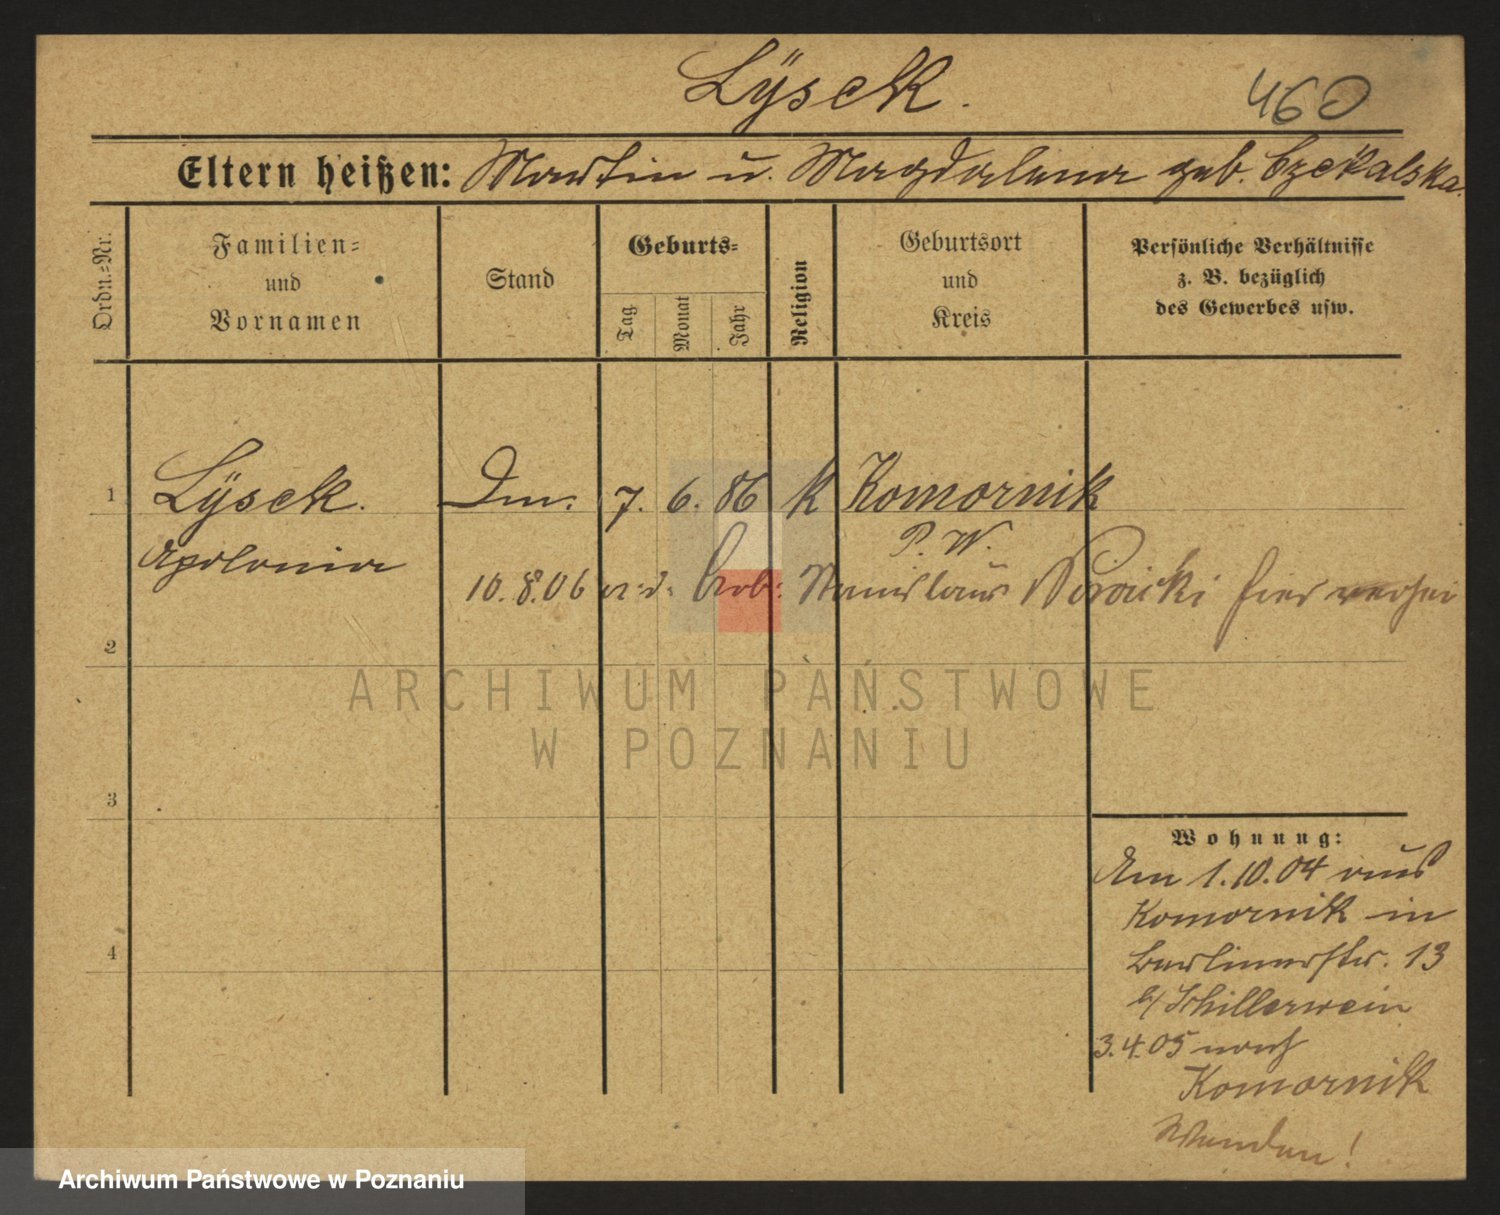 Lÿsek.
460
Eltern heißen: Martin u. Magdalena geb. Czekalska.
Ordn.=Nr.
Familien=
und
Vornamen
Stand
Geburts=
Tag
Monat
Jahr
Religion
Geburtsort
und
Kreis
Persönliche Verhältnisse
z. B. bezüglich
des Gewerbes usw.
1 Lÿsek. Dm. 7. 6. 86 k Komornik
Apolonia P. W.
10.8.06 Stanislaus hier
2
ARCHIWUM PAŃSTWOWE
W POZNANIU
3
Wohnung:
Am 1.10.04 aus
Komornik in
Berlinerstr. 13
b/ Schillerwein
3.4.05 nach
Komornik
Wenden!
4
Archiwum Państwowe w Poznaniu